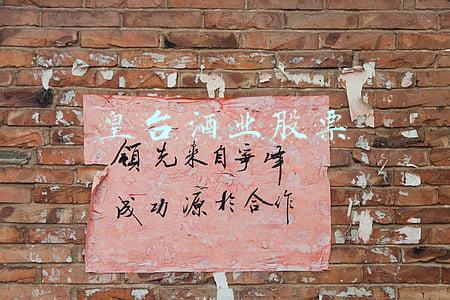 皇台酒业股票
领先来自争峰
成功源於合作